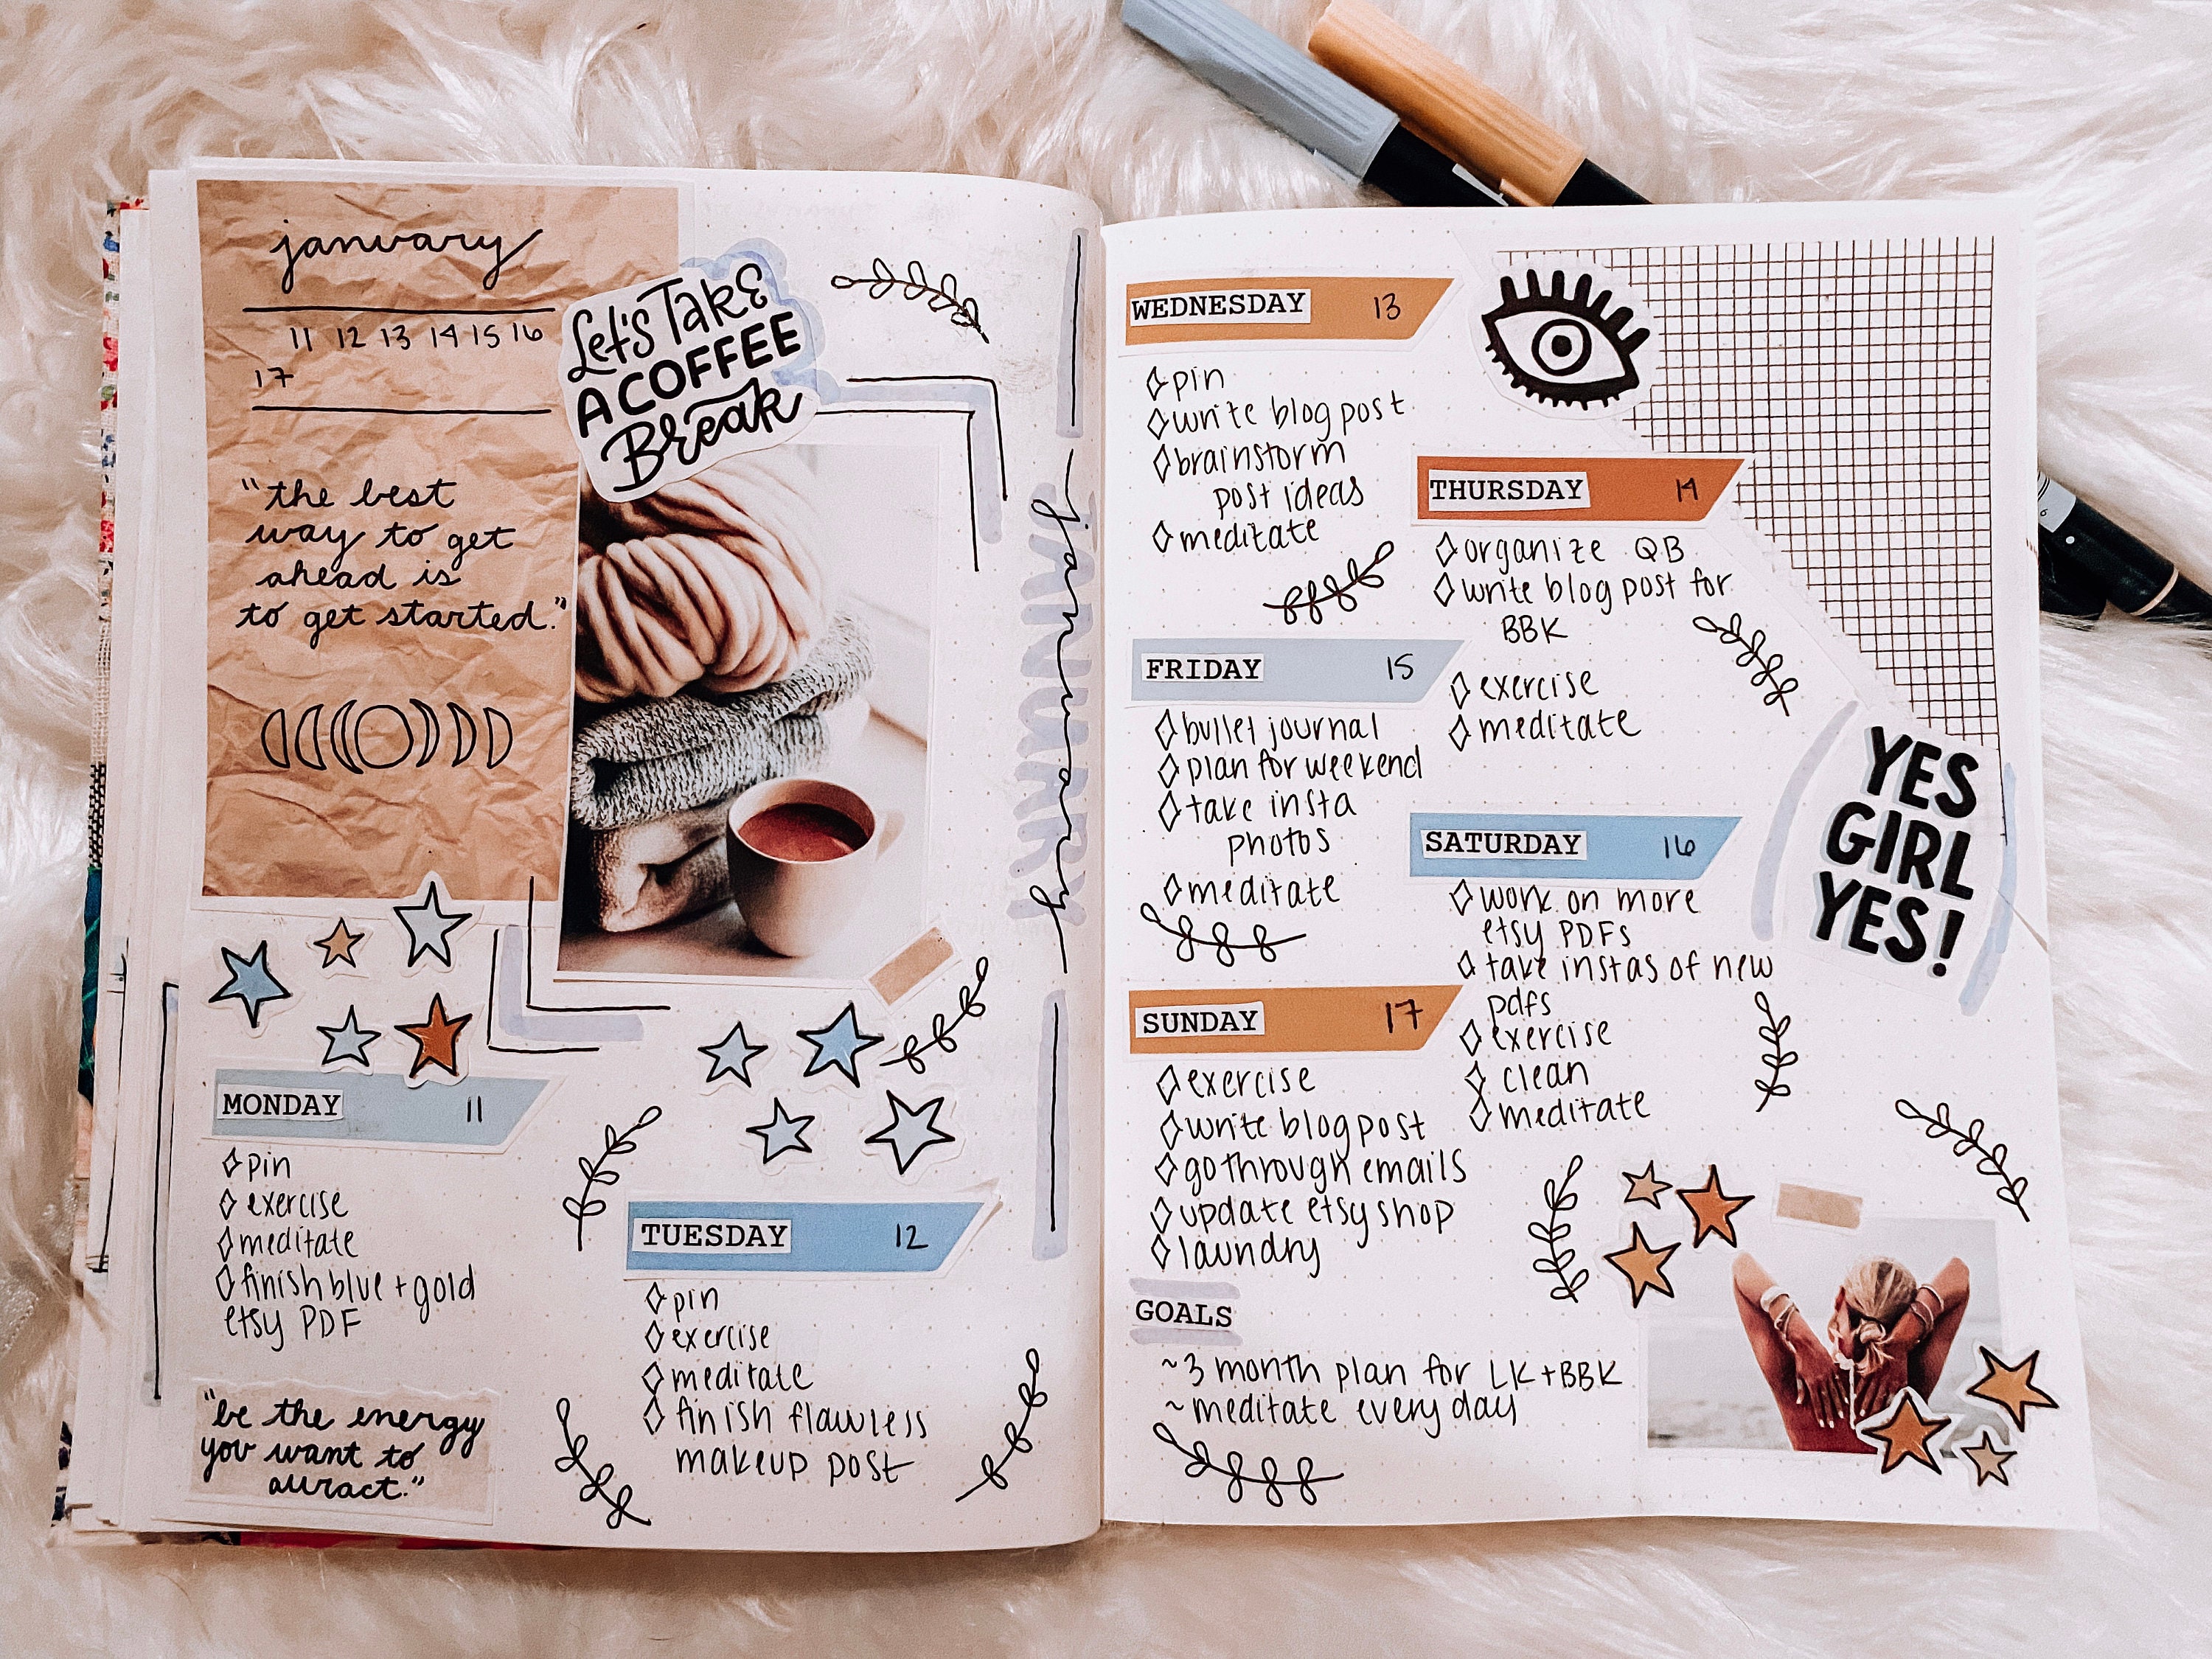 january
11 12 13 14 15 16
17
"the best
way to get
ahead is
to get started."
Let's Take
A COFFEE
Break
MONDAY 11
pin
exercise
meditate
finish blue + gold
etsy PDF
"be the energy
you want to
attract."
TUESDAY 12
pin
exercise
meditate
finish flawless
makeup post
JANUARY
january
WEDNESDAY 13
pin
write blog post
brainstorm
post ideas
meditate
THURSDAY 14
organize QB
write blog post for
BBK
exercise
meditate
FRIDAY 15
bullet journal
plan for weekend
take insta
photos
meditate
SATURDAY 16
work on more
etsy PDFs
take instas of new
pdfs
exercise
clean
meditate
YES
GIRL
YES!
SUNDAY 17
exercise
write blog post
go through emails
update etsy shop
laundry
GOALS
~3 month plan for LK+BBK
~meditate every day